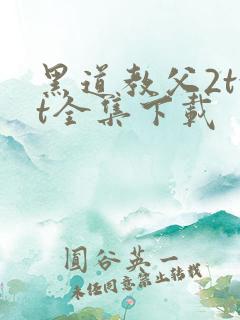 黑道教父2tx
t全集下载
圆谷英一
未经同意禁止转载